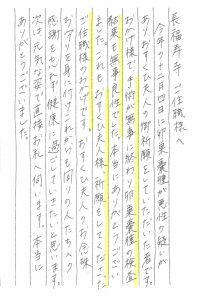 長福寿寺 ご住職様へ
今年の十二月四日に卵巣嚢腫が悪性の疑いが
あり、おすくい夫人の御祈願をしていただいた者です。
おかげ様で手術が無事に終わり卵巣嚢腫の検査
結果も無事良性でした。本当にありがとうござい
ました。これもおすくい夫人様、祈願をしてくださった
ご住職様のおかげです。おすくい夫人のお念珠
お守りを身に付けこれからも周りの人たちへの
感謝をわすれず健康に過ごしていきたいと思います。
次は元気な姿で直接お礼に伺います。本当に
ありがとうございました。